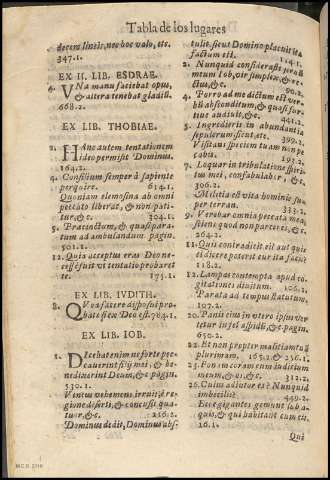 Tabla de los lugares
decem lineis, nec hoc valo, etc.
347.1.
EX II. LIB. ESDRAE.
4. Vna manu faciebat opus,
& altera tenebat gladiũ.
668.2.
EX LIB. THOBIAE.
2. Hanc autem tentationem
ideo permisit Dominus.
164.2.
4. Consilium semper à sapiente
perquire. 614.1.
Quoniam elemosina ab omni
peccato liberat, & non pati-
tur, &c. 304.1.
5. Præcinctum, & quasi para-
tum ad ambulandum pagin.
501.1.
12. Quia acceptus eras Deo ne-
cesse fuit vt tentatio probaret
te. 175.1.
EX LIB. IVDITH.
8. Quo facere disposui pro-
bate si ex Deo est. 784.1.
EX LIB. IOB.
1. Dicebat enim ne forte pec-
cauerint filij mei, & be-
nedixerint Deum, &c pagin
530.1.
Ventus vehemens irruit à re-
gione deserti, & concussit qua-
tuor, &c. 216.2.
Dominus dedit, Dominus abs-
tulit, sicut Domino placuit ita
factum est. 141.1.
2. Nunquid considerasti seruũ
meum Iob, vir simplex, & re-
ctus, &c. 201.2.
4. Porro ad me dictum est ver-
bũ absconditum, & quasi fur-
tiue audiuit, &c. 441.2.
5. Ingredieris in abundantia
sepulcrum sicut, etc. 399.2.
Visitans speciem tuam non
peccabis. 193.2.
7. Loquar in tribulatione spiri-
tus mei, confabulabor, &c.
306.2.
Militia est vita hominis su-
per terram. 333.2.
9. Verebar omnia opera mea
sciens quod non parceres, &c.
264.2.
11. Qui contradicit ei aut quis
ei dicere poterit cur ita facis?
118.2.
12. Lampas contempta apud co-
gitationes diuitum. 106.2.
Parata ad tempus statutum.
107.2.
20. Panis eius in vtero ipsius ver
tetur in fel aspidũ, & c. pagin.
650.2.
22. Et non propter malitiam tuã
plurimam. 165.2 & 256.1.
24. Pones coram eum iudicium
meum, &c. 312.2.
25. Cui adiutor es? Nunquid
imbecilli? 449.2.
26. Ecce gigantes gemunt sub a-
quis, & qui habitant cum eis
16.1.
Qui